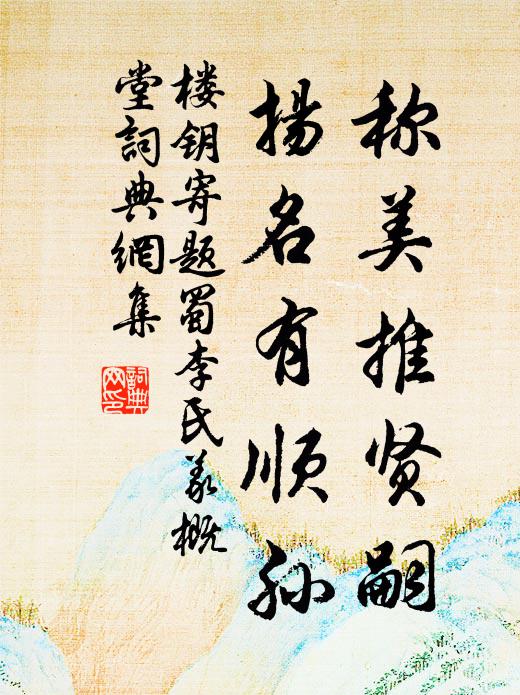 称美推贤嗣
揚名有顺孙
楼钥寄题蜀李氏义概
堂詞典網集
詞典
网印